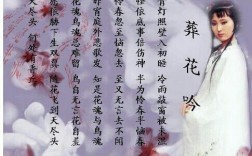 葬花吟
青灯照壁人初睡 冷雨敲窗被未温
怪侬底事倍伤神 半为怜春半恼春
怜春忽至恼忽去 至又无言去不闻
昨宵庭外悲歌发 知是花魂与鸟魂
花魂鸟魂总难留 鸟自无言花自羞
愿侬胁下生双翼 随花飞到天尽头
天尽头 何处有香